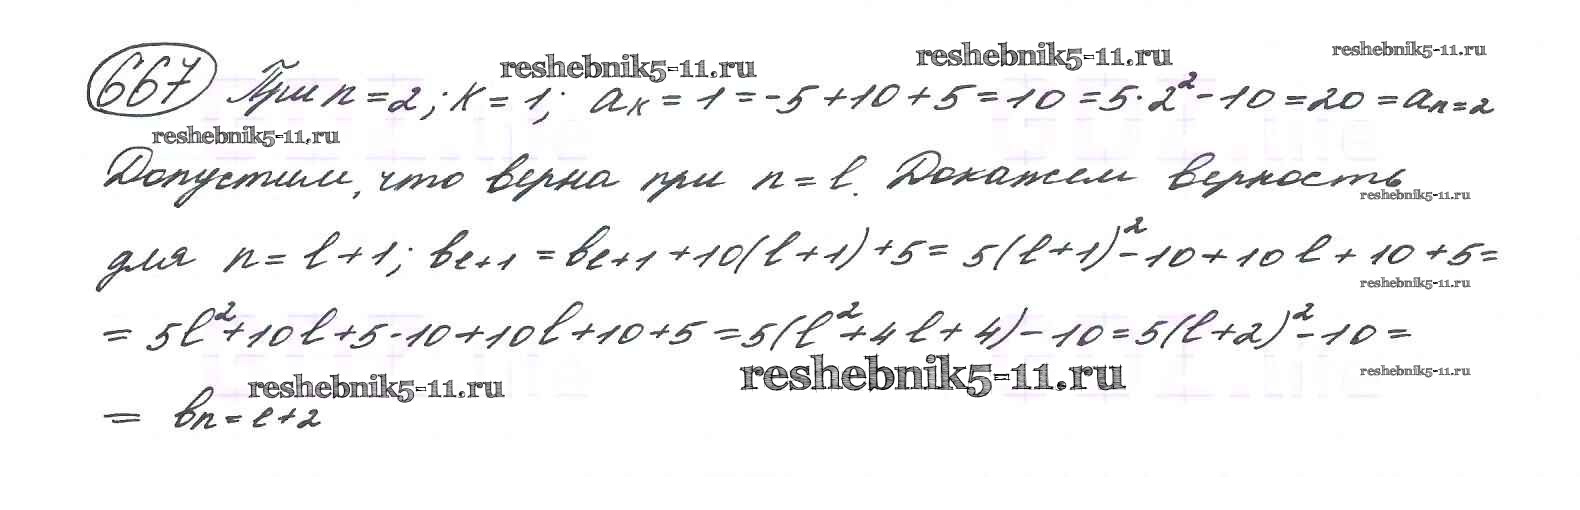 reshebnik5-11.ru reshebnik5-11.ru reshebnik5-11.ru
667 При n=2; k=1; a_k=1=-5+10+5=10=5·2²-10=20=a_n=2
reshebnik5-11.ru
Допустим, что верна при n=l. Докажем верность
reshebnik5-11.ru
для n=l+1; b_l+1=b_l+1+10(l+1)+5=5(l+1)²-10+10l+10+5=
reshebnik5-11.ru
=5l²+10l+5-10+10l+10+5=5(l²+4l+4)-10=5(l+2)²-10=
reshebnik5-11.ru reshebnik5-11.ru reshebnik5-11.ru
= b_n=l+2